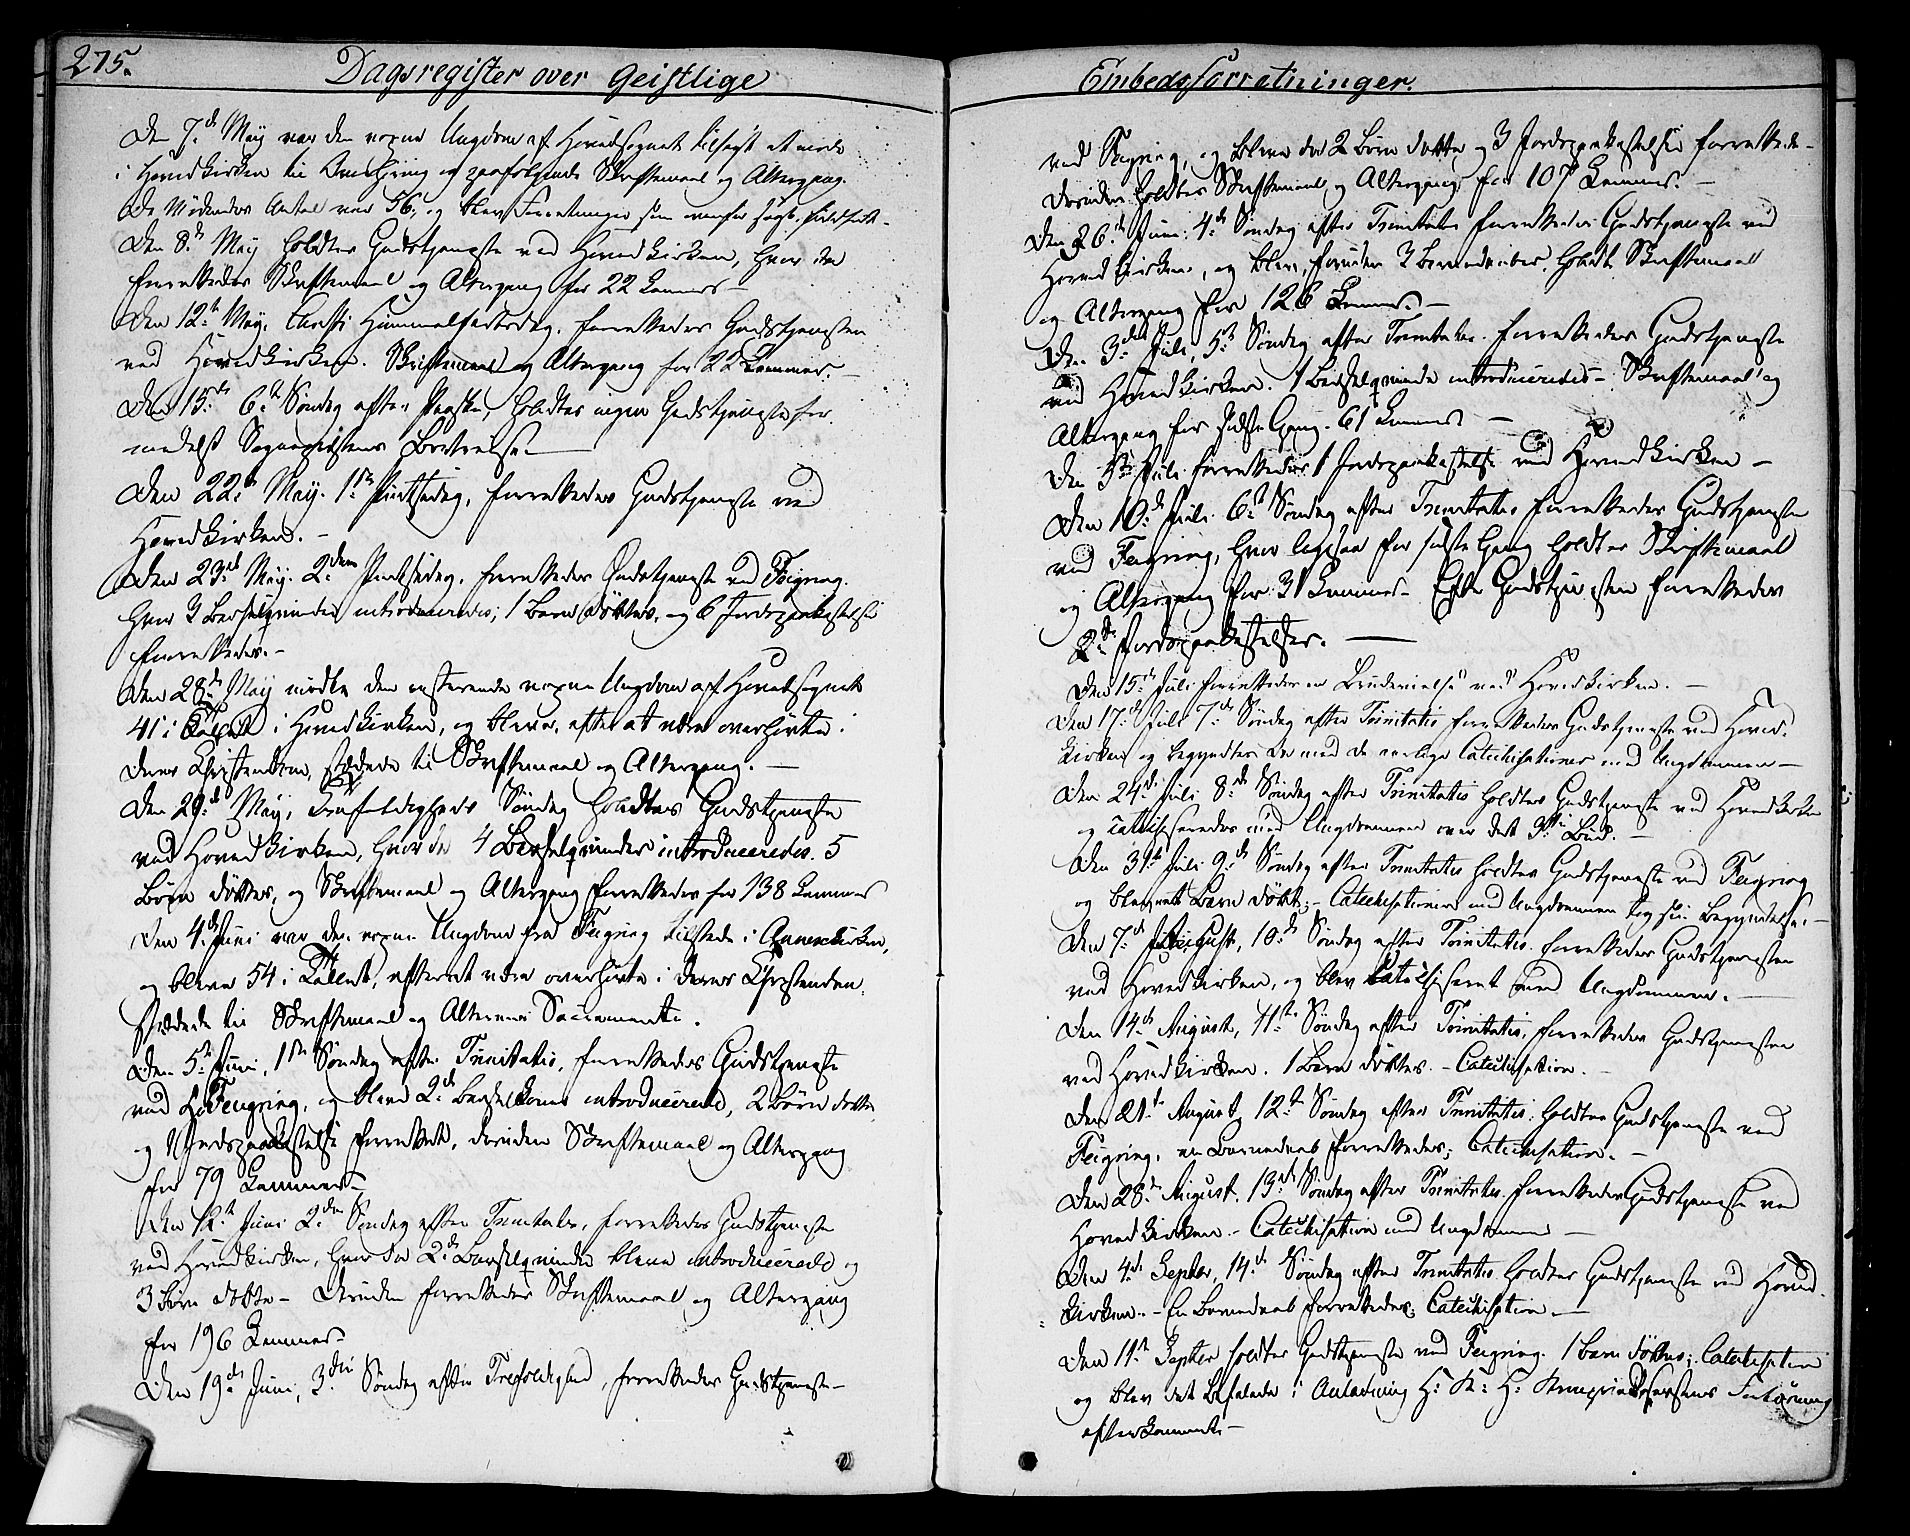 275.
Dagsregister over Geistlige
Den 7de May var den voxne Ungdom af Hovedsognet tilsagt at møde
i Hovedkirken til Overhøring og paafølgende Skriftemaal og Altergang.
De Mødendes Antal var 56, og blev Forretningen som ovenfor sagt, fuldført.
Den 8de May holdtes Gudstjeneste ved Hovedkirken, hvor der
forrettedes Skriftemaal og Altergang for 22 Lemmer
Den 12te May, Christi Himmelfartsdag, forrettedes Gudstjenesten
ved Hovedkirken. Skriftemaal og Altergang for 22 Lemmer.
Den 15de 6te Søndag efter Paaske, holdtes ingen Gudstjeneste for-
medelst Sognepræstens
Den 22de May. 1ste Pintsedag, forrettedes Gudstjeneste ved
Hovedkirken.
Den 23de May. 2den Pintsedag, forrettedes Gudstjeneste ved Feigring.
hvor 3 Barselqvinder introduceredes; 1 Barn døbtes, og 6 Jordspaakastelse
forrettedes.
Den 28de May mødte den resterende voxne Ungdom af Hovedsognet
41 i Tallet i Hovedkirken, og bleve, efter at være overhørte i
deres Christendom, stædede til Skriftemaal og Altergang.
Den 29de May, Trefoldigheds Søndag holdtes Gudstjeneste
ved Hovedkirken, hvor der 4 Barselqvinder introduceredes. 5
Børn døbtes, og Skriftemaal og Altergang forrettedes for 138 Lemmer
Den 4de Juni var den voxne Ungdom fra Feigring tilstede i Annexkirken,
og bleve 54 i Tallet, efterat være overhørte i deres Christendom,
stædede til Skriftemaal og Alterens Sacramente.
Den 5te Juni, 1ste Søndag efter Trinitatis, forrettedes Gudstjeneste
ved Feigring, og bleve 2de Barselkoner introducerede, 2 Børn døbte,
og 1 Jordspaakastelse forrettet, desuden Skriftemaal og Altergang
for 79 Lemmer
Den 12te Juni 2den Søndag efter Trinitatis, forrettedes Gudstjeneste
ved Hovedkirken, hvor der 2de Barselqvinder bleve introducerede og
3 Børn døbte – Desuden forrettedes Skriftemaal og Altergang
for 196 Lemmer
Den 19de Juni, 3die Søndag efter Trefoldighed, forrettedes Gudstjeneste
Embedsforretninger.
ved Feigring, og bleve der 2 Børn døbte og 3 Jordspaakastelser forrettede
Desuden holdtes Skriftemaal og Altergang for 107 Lemmer.
Den 26de Juni. 4de Søndag efter Trinitatis forrettedes Gudstjeneste ved
Hovedkirken, og blev, foruden 3 Barnedaaber, holdt Skriftemaal
og Altergang for 126 Lemmer.
Den 3die Juli, 5te Søndag efter Trinitatis. forrettedes Gudstjeneste
ved Hovedkirken. 1 Barselqvinde introduceredes – Skriftemaal og
Altergang for sidste Gang. 61 Lemmer
Den 5te Juli forrettedes 1 Jordspaakastelse ved Hovedkirken –
Den 10de Juli 6te Søndag efter Trinitatis forrettedes Gudstjeneste
ved Feigring, hvor ligesaa for sidste Gang holdtes Skriftemaal
og Altergang for 31 Lemmer – Efter Gudstjenesten forrettedes
2de Jordspaakastelser.
Den 15de Juli forrettedes en Brudevielse ved Hovedkirken.
Den 17de Juli 7de Søndag efter Trinitatis forrettedes Gudstjeneste ved Hoved-
kirken og begyndtes der med de aarlige Catechisationer med Ungdommen –
Den 24de Juli 8de Søndag efter Trinitatis holdtes Gudstjeneste ved Hovedkirken
og catechiseredes med Ungdommen over det 3die Bud.
Den 31te Juli 9de Søndag efter Trinitatis holdtes Gudstjeneste ved Feigring
og blev et Barn døbt; – Catechisationen med Ungdommen tog sin Begyndelse. –
Den 7de August, 10de Søndag efter Trinitatis. forrettedes Gudstjenesten
ved Hovedkirken, og blev Catechiseret med Ungdommen.
Den 14de August, 11te Søndag efter Trinitatis, forrettedes Gudstjenesten
ved Hovedkirken. 1 Barn døbtes. – Catechisation.
Den 21de August 12te Søndag efter Trinitatis. holdtes Gudstjeneste ved
Feigring, en Barnedaab forrettedes; Catechisation.
Den 28de August. 13de Søndag efter Trinitatis. forrettedes Gudstjeneste ved
Hovedkirken. – Catechisation med Ungdommen
Den 4de Septbr, 14de Søndag efter Trinitatis holdtes Gudstjeneste ved Hoved-
kirken. – En Barnedaab forrettedes; Catechisation.
Den 11te Septbr holdtes Gudstjeneste ved Feigring. 1 Barn døbtes; Catechisation
og blev det befalede i Anledning H: K: H: Kronprindsessens
efterkommet –